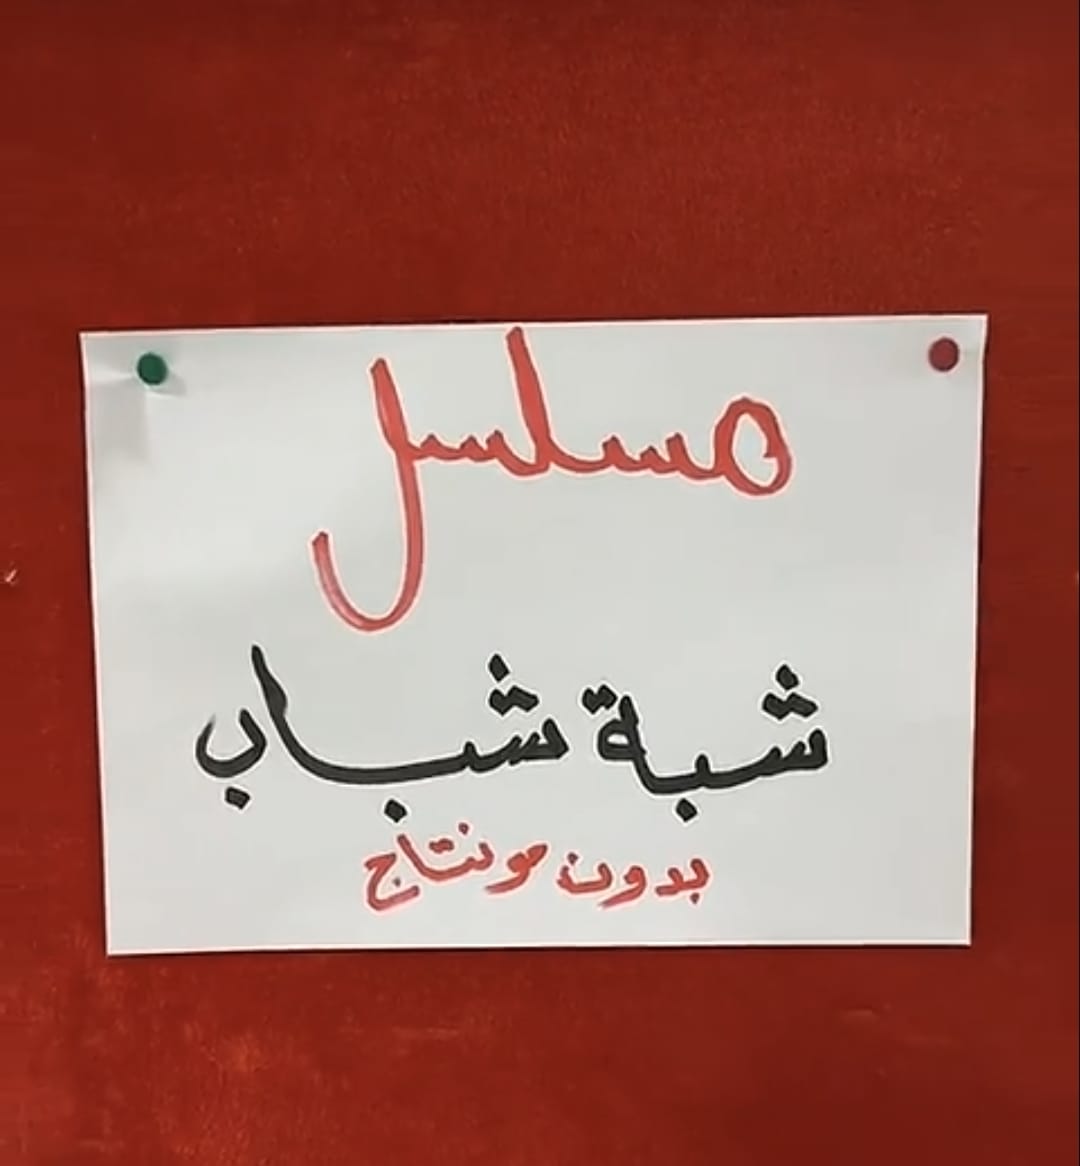 مسلسل
شبة شباب
بدون مونتاج